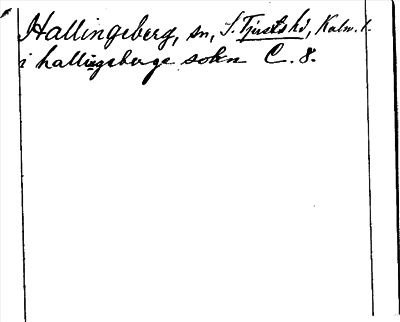 Hallingeberg, sn, S. Tjusts hd, Kalm. l.
i hallingeberge sokn C. 8.